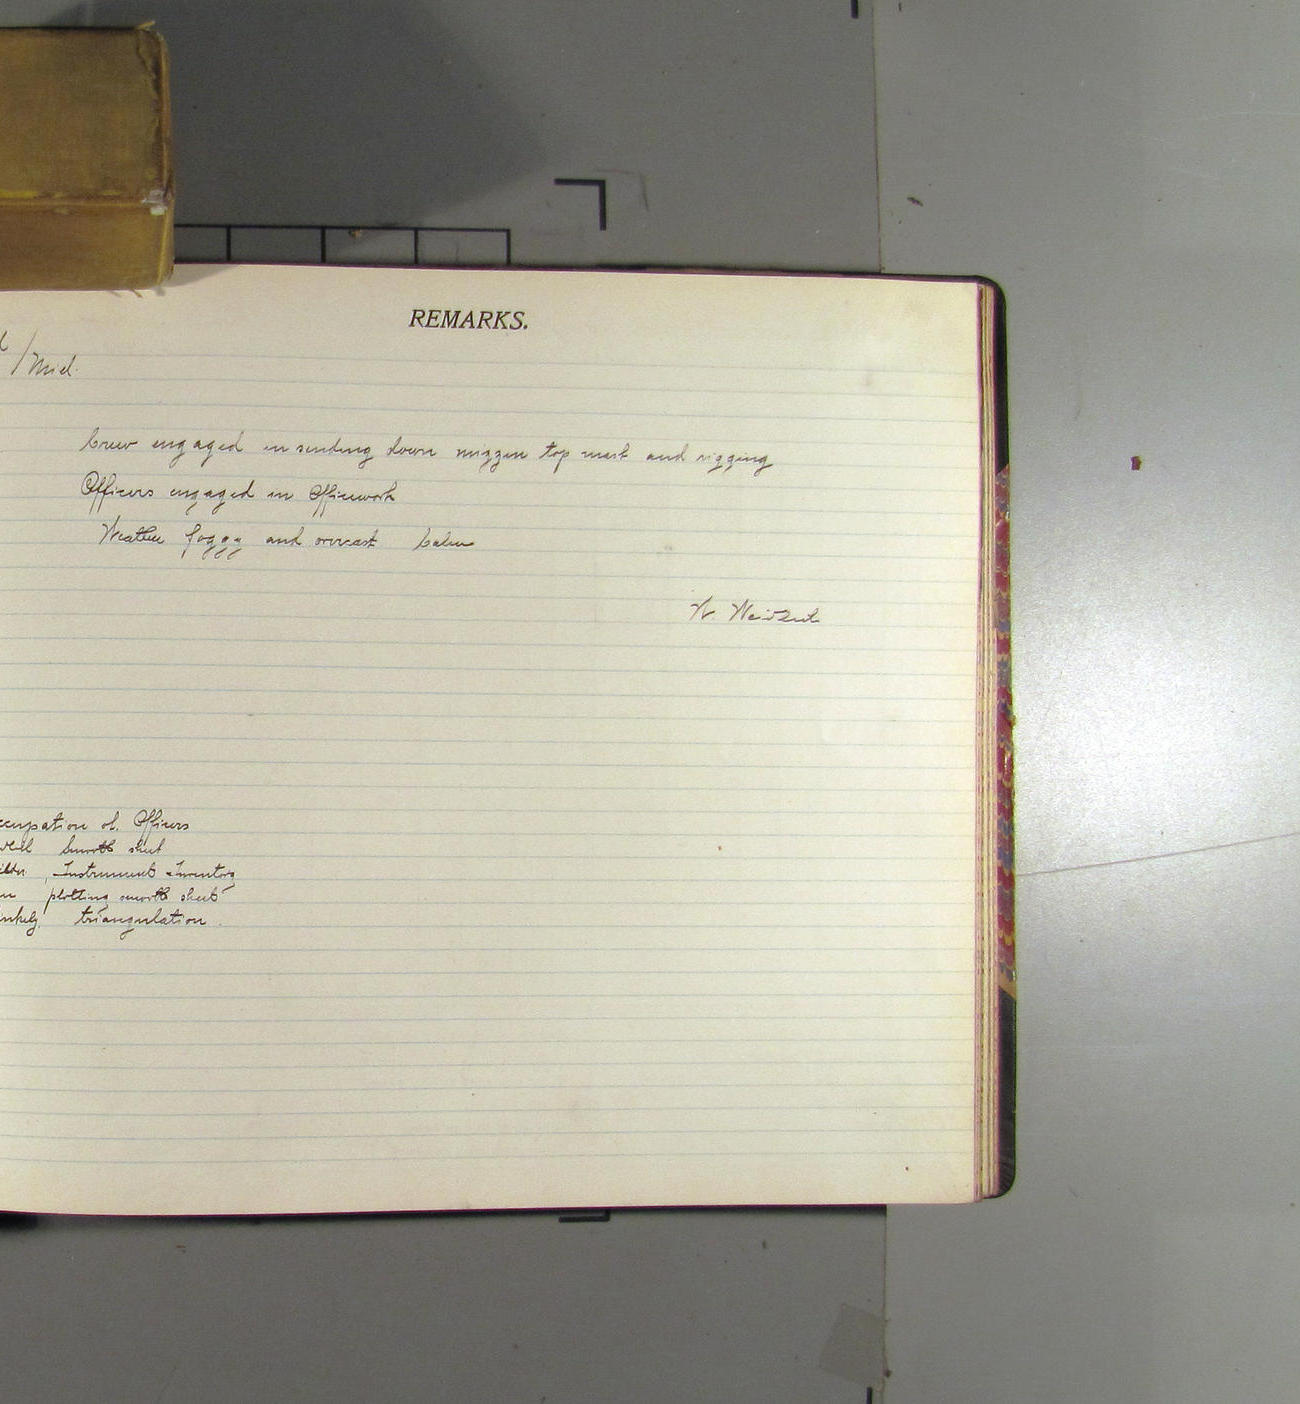 REMARKS.
/Mid.
Crew engaged in sending down mizzen top mast and rigging
Officers engaged in Officework
Weather foggy and overcast Calm
ccupation of. Officers
Smooth sheet
, Instrument Inventory
plotting smooth sheet
triangulation.